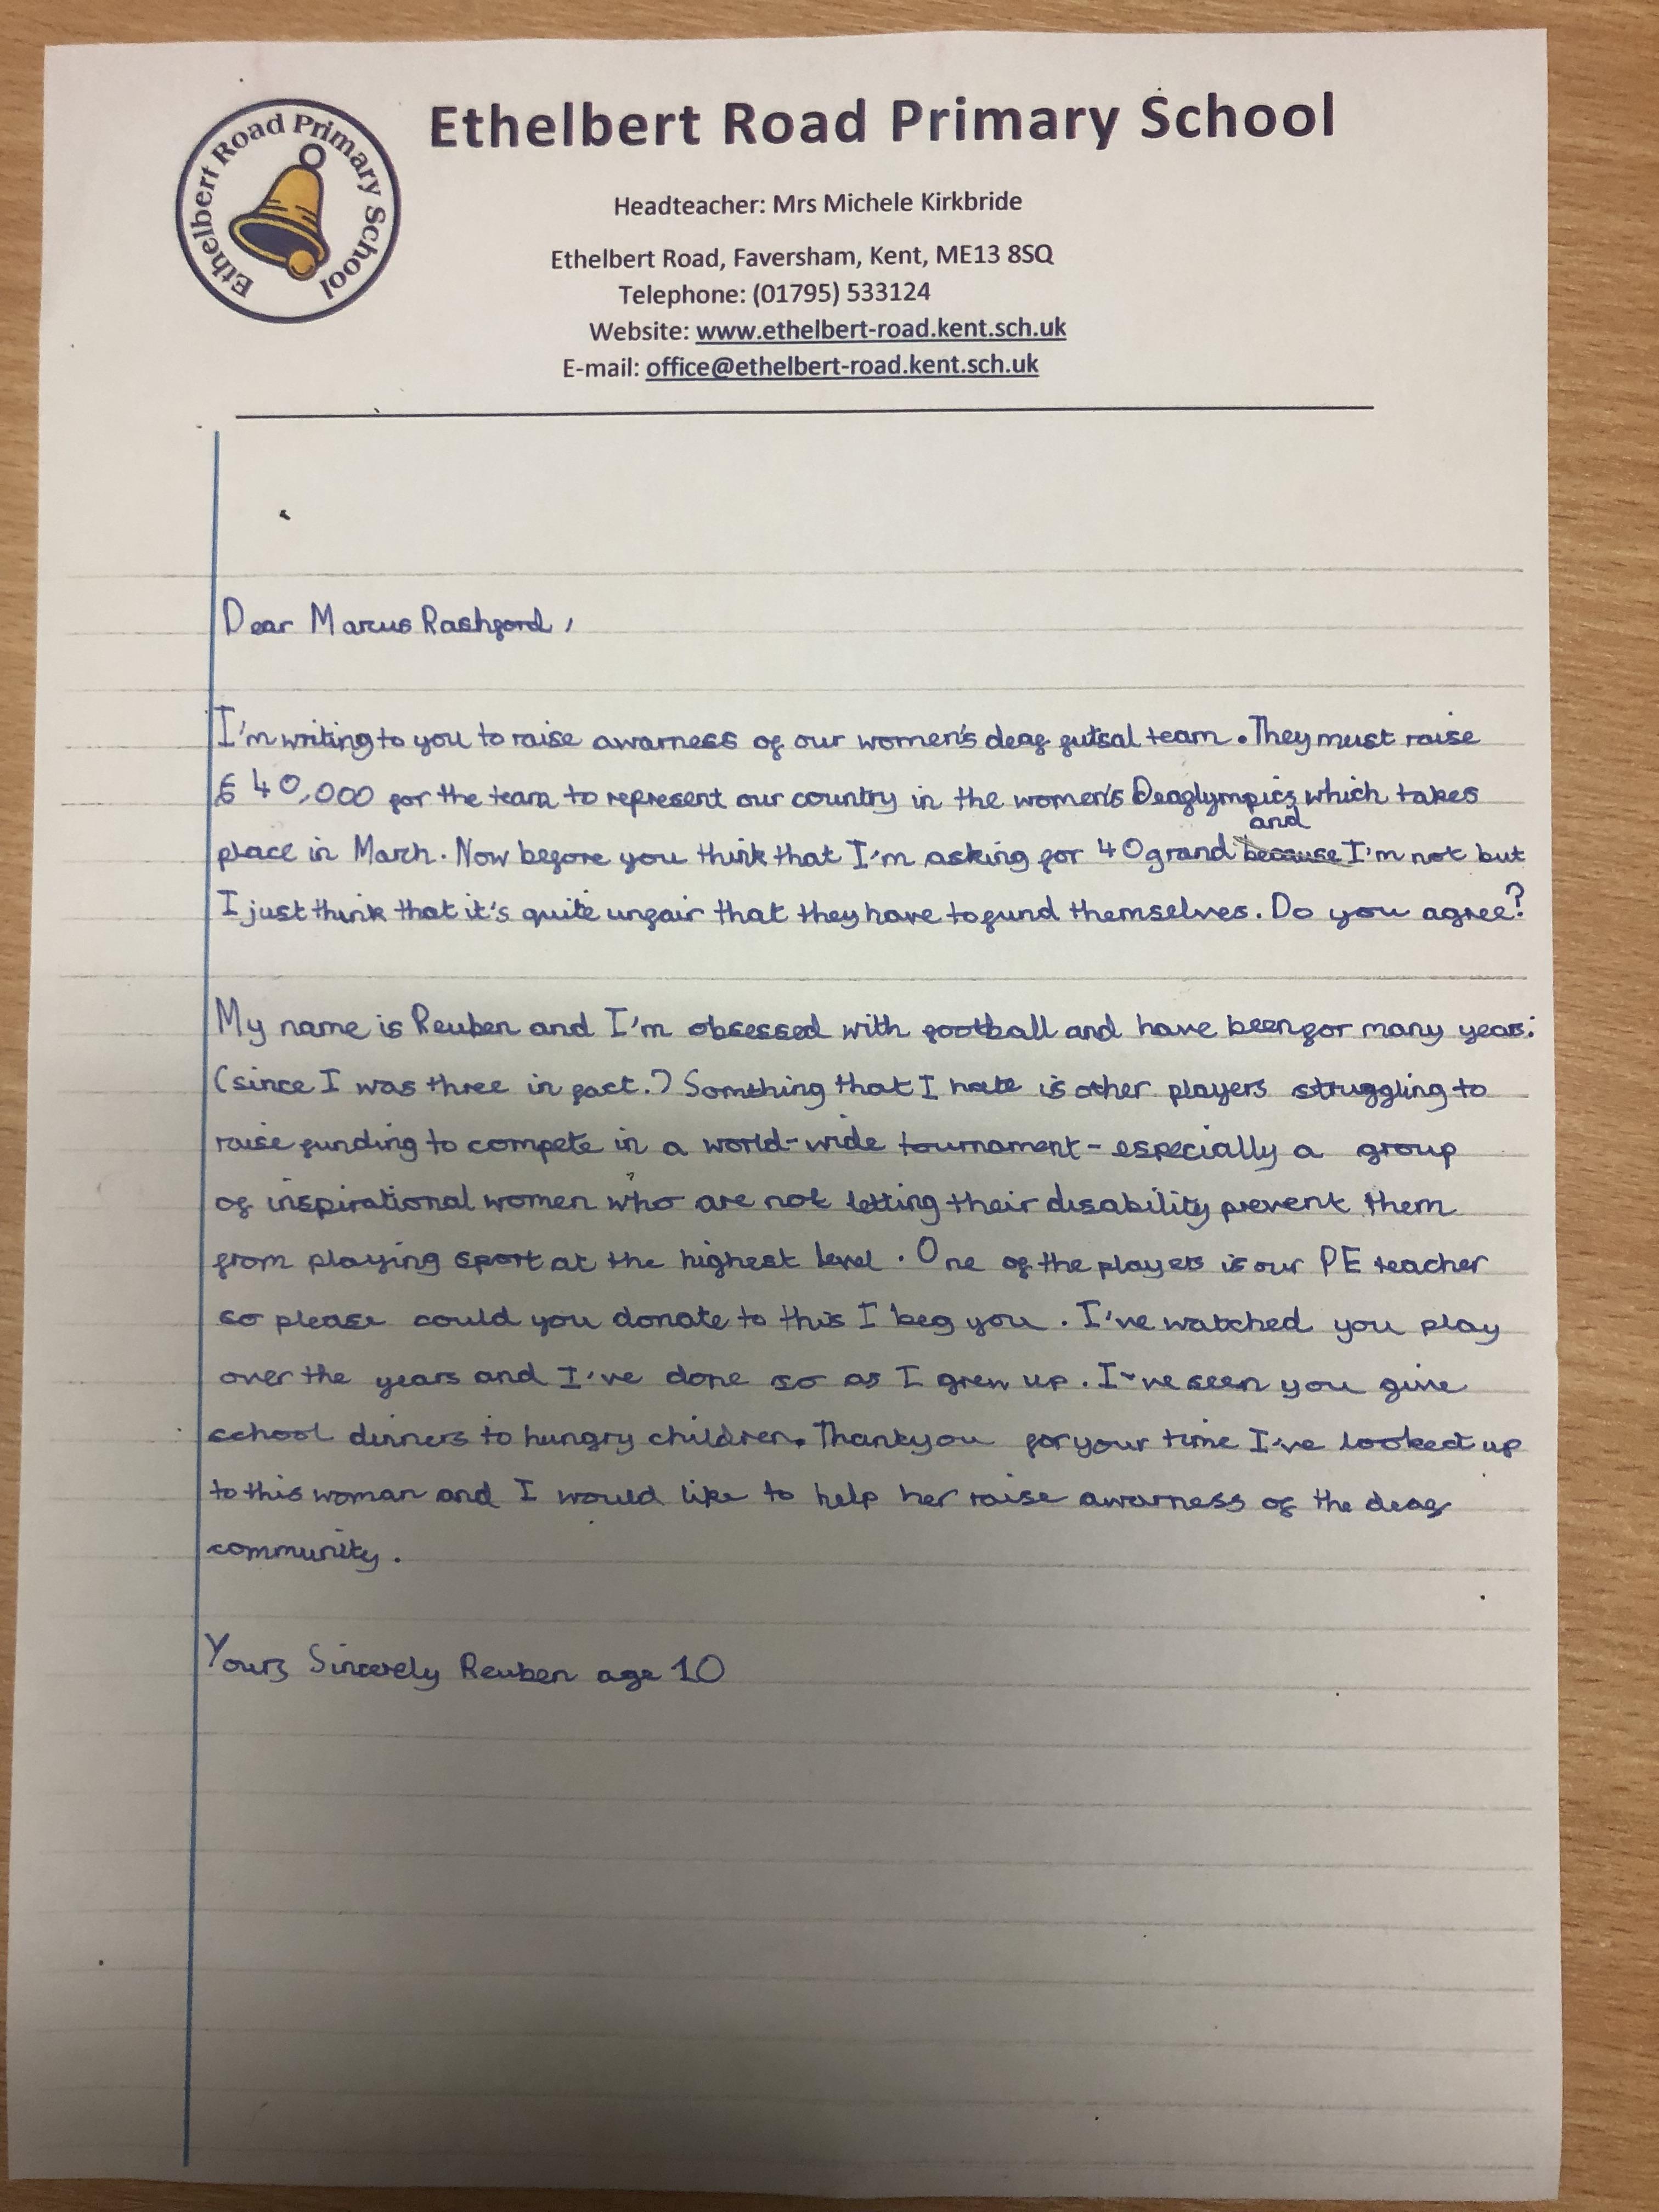 Ethelbert Road Primary School
Ethelbert Road Primary School
Headteacher: Mrs Michele Kirkbride
Ethelbert Road, Faversham, Kent, ME13 8SQ
Telephone: (01795) 533124
Website: www.ethelbert-road.kent.sch.uk
E-mail: office@ethelbert-road.kent.sch.uk
Dear Marcus Rashford,
I'm writing to you to raise awarness of our women's deaf futsal team. They must raise
£40,000 for the team to represent our country in the women's Deaflympics which takes
place in March. Now before you think that I'm asking for 40 grand because and I'm not but
I just think that it's quite unfair that they have to fund themselves. Do you agree?
My name is Reuben and I'm obsessed with football and have been for many years.
(since I was three in fact.) Somthing that I hate is other players struggling to
raise funding to compete in a world-wide tournament - especially a group
of inspirational women who are not letting their disability prevent them
from playing sport at the highest level. One of the players is our PE teacher
so please could you donate to this I beg you. I've watched you play
over the years and I've done so as I grew up. I've seen you give
school dinners to hungry children. Thankyou for your time I've looked up
to this woman and I would like to help her raise awarness of the deaf
community.
Yours Sincerely Reuben age 10